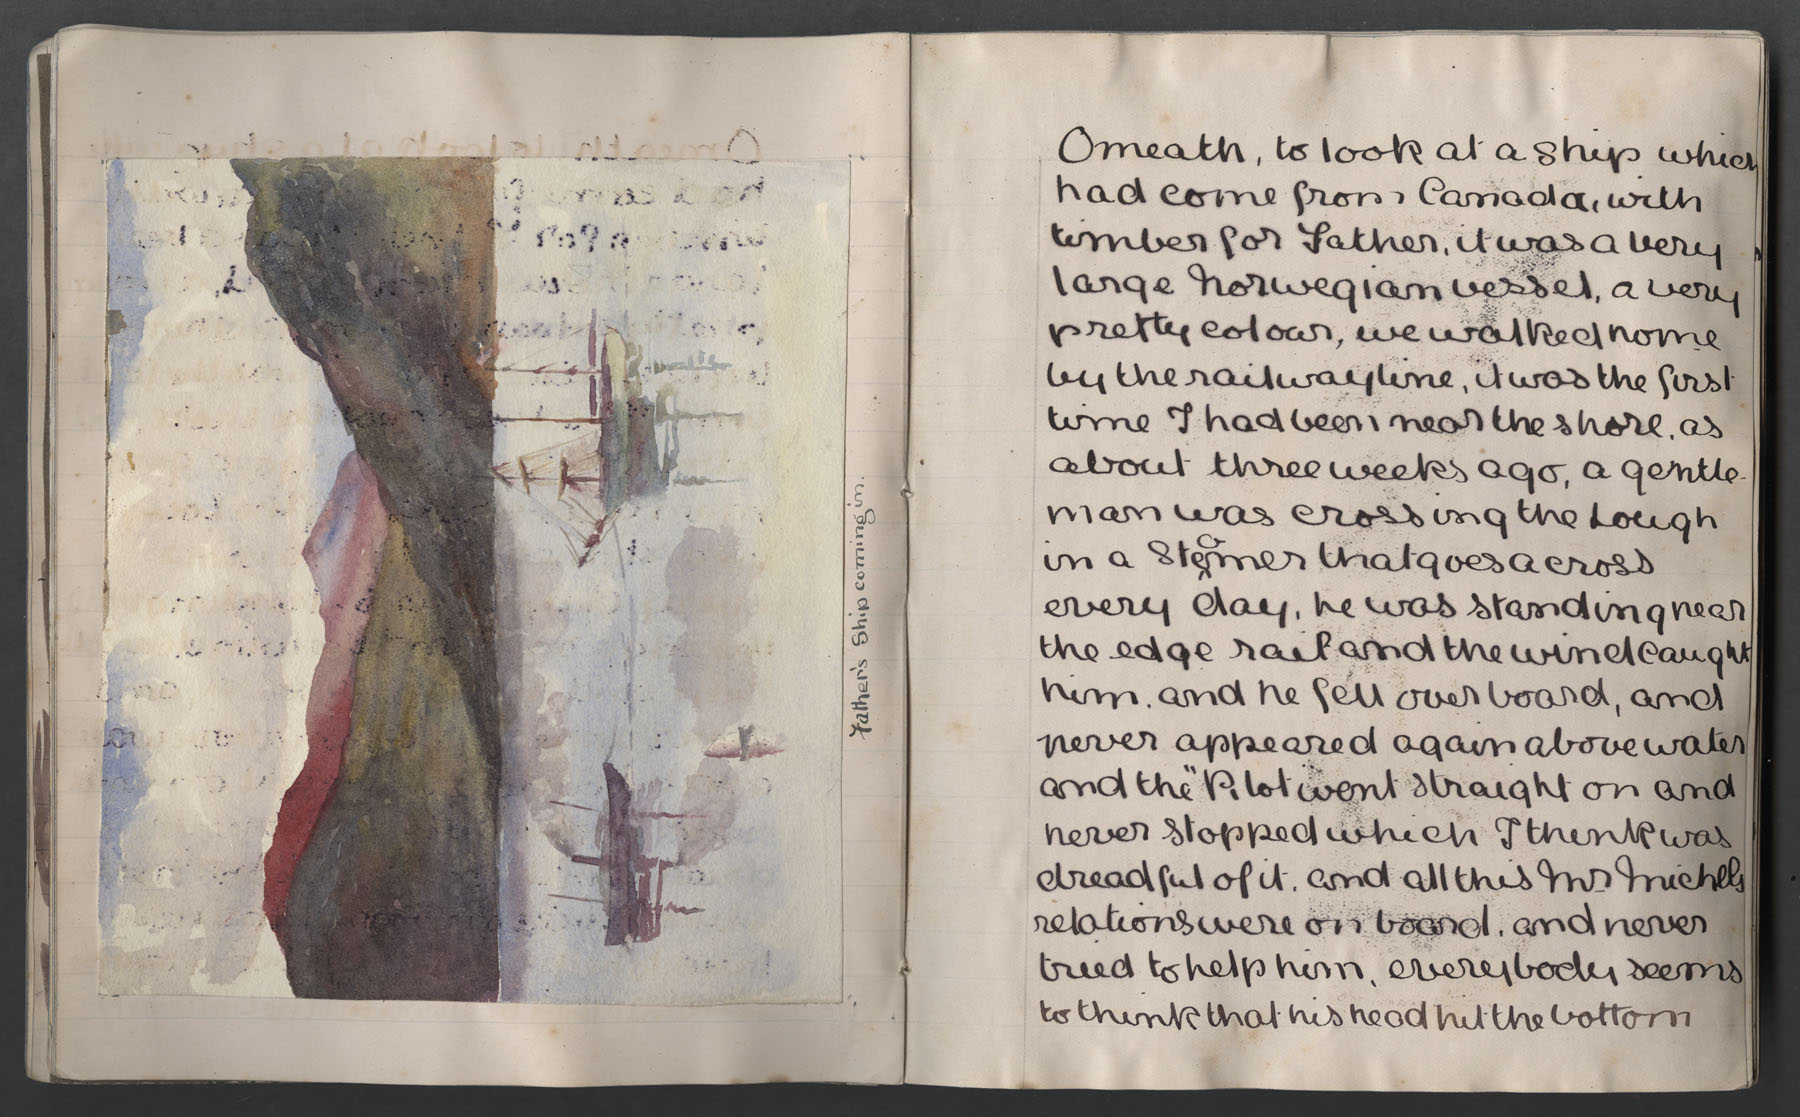 Father's Ship coming in.
Omeath, to look at a ship which
had come from Canada, with
timber for Father, it was a very
large Norwegian vessel, a very
pretty colour, we walked home
by the railway line, it was the first
time I had been near the shore, as
about three weeks ago, a gentle-
man was crossing the Lough
in a Steamer that goes across
every day, he was standing near
the edge rail and the wind caught
him. and he fell over board, and
never appeared again above water
and the "Pilot went straight on and
never stopped which I think was
dreadful of it. and all this Mr Michels
relations were on board. and never
tried to help him, everybody seems
to think that his head hit the bottom